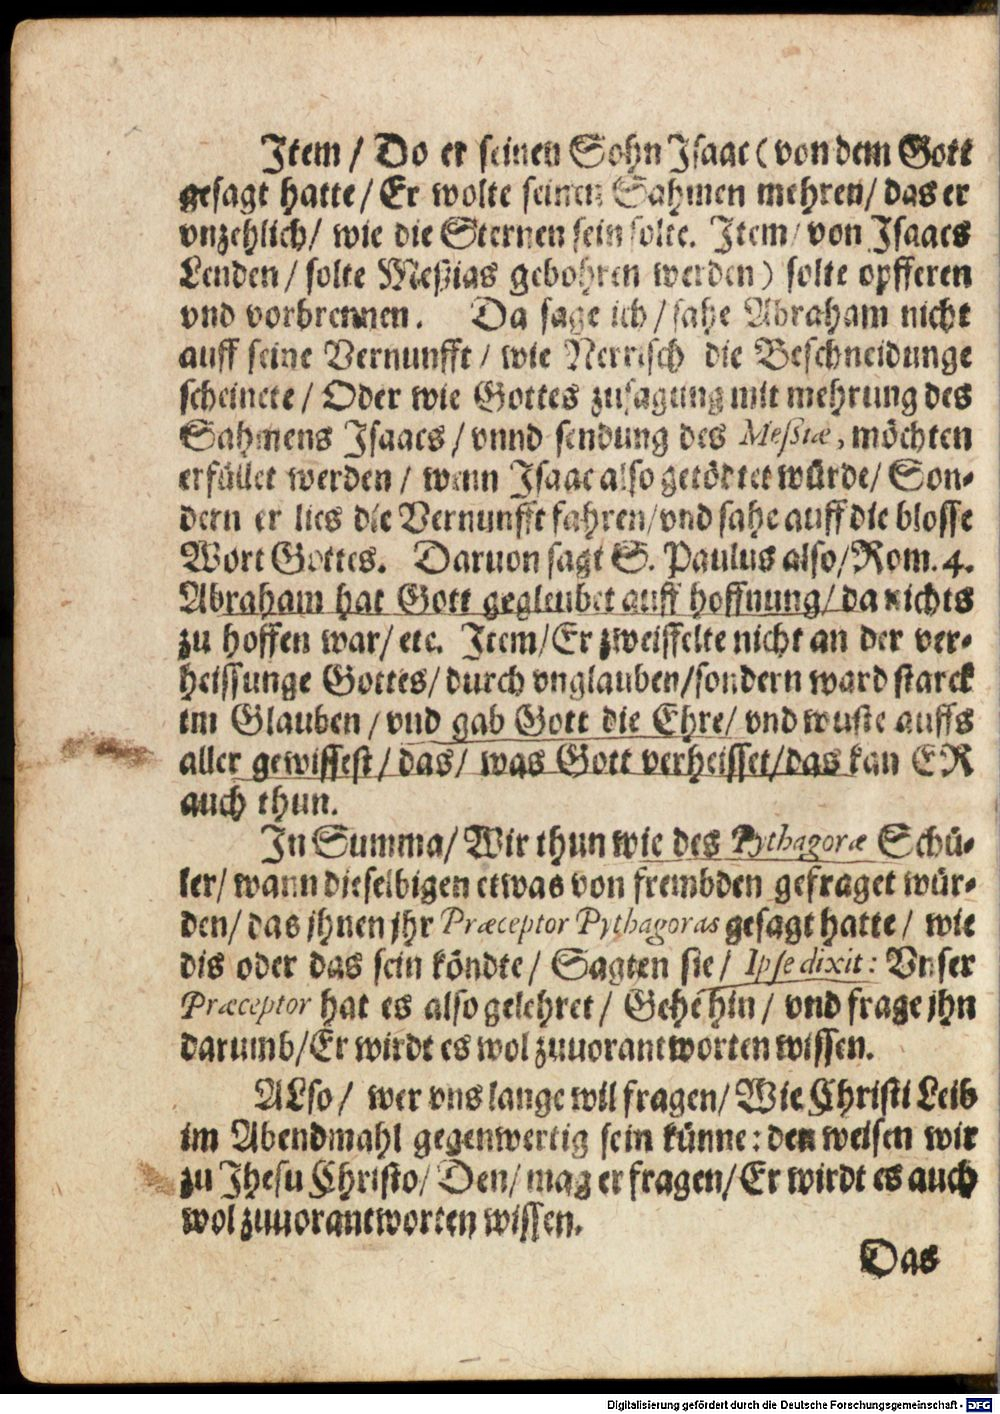 Item / Do er seinen Sohn Isaac (von dem Gott
gesagt hatte / Er wolte seinen Sahmen mehren / das er
vnzehlich / wie die Sternen sein solte. Item / von Isaacs
Lenden / solte Meßias gebohren werden) solte opfferen
vnd vorbrennen. Da sage ich / sahe Abraham nicht
auff seine Vernunfft / wie Nerrisch die Beschneidunge
scheinete / Oder wie Gottes zusagung mit mehrung des
Sahmens Isaacs / vnnd sendung des Meßiæ, möchten
erfüllet werden / wenn Isaac also getödtet würde / Son-
dern er lies die Vernunfft fahren / vnd sahe auff die blosse
Wort Gottes. Daruon sagt S. Paulus also / Rom. 4.
Abraham hat Gott gegleubet auff hoffnung / da nichts
zu hoffen war / etc. Item / Er zweiffelte nicht an der ver-
heissunge Gottes / durch vnglauben / sondern ward starck
im Glauben / vnd gab Gott die Ehre / vnd wuste auffs
aller gewissest / das / was Gott verheisset / das kan ER
auch thun.
In Summa / Wir thun wie des Pythagoræ Schü-
ler / wann dieselbigen etwas von frembden gefraget wür-
den / das ihnen ihr Præceptor Pythagoras gesagt hatte / wie
dis oder das sein köndte / Sagten sie / Ipse dixit: Vnser
Præceptor hat es also gelehret / Gehe hin / vnd frage ihn
darumb / Er wirdt es wol zuuorantworten wissen.
ALso / wer vns lange wil fragen / Wie Christi Leib
im Abendmahl gegenwertig sein künne: den weisen wir
zu Jhesu Christo / Den / mag er fragen / Er wirdt es auch
wol zuuorantworten wissen.
Das
Digitalisierung gefördert durch die Deutsche Forschungsgemeinschaft - DFG